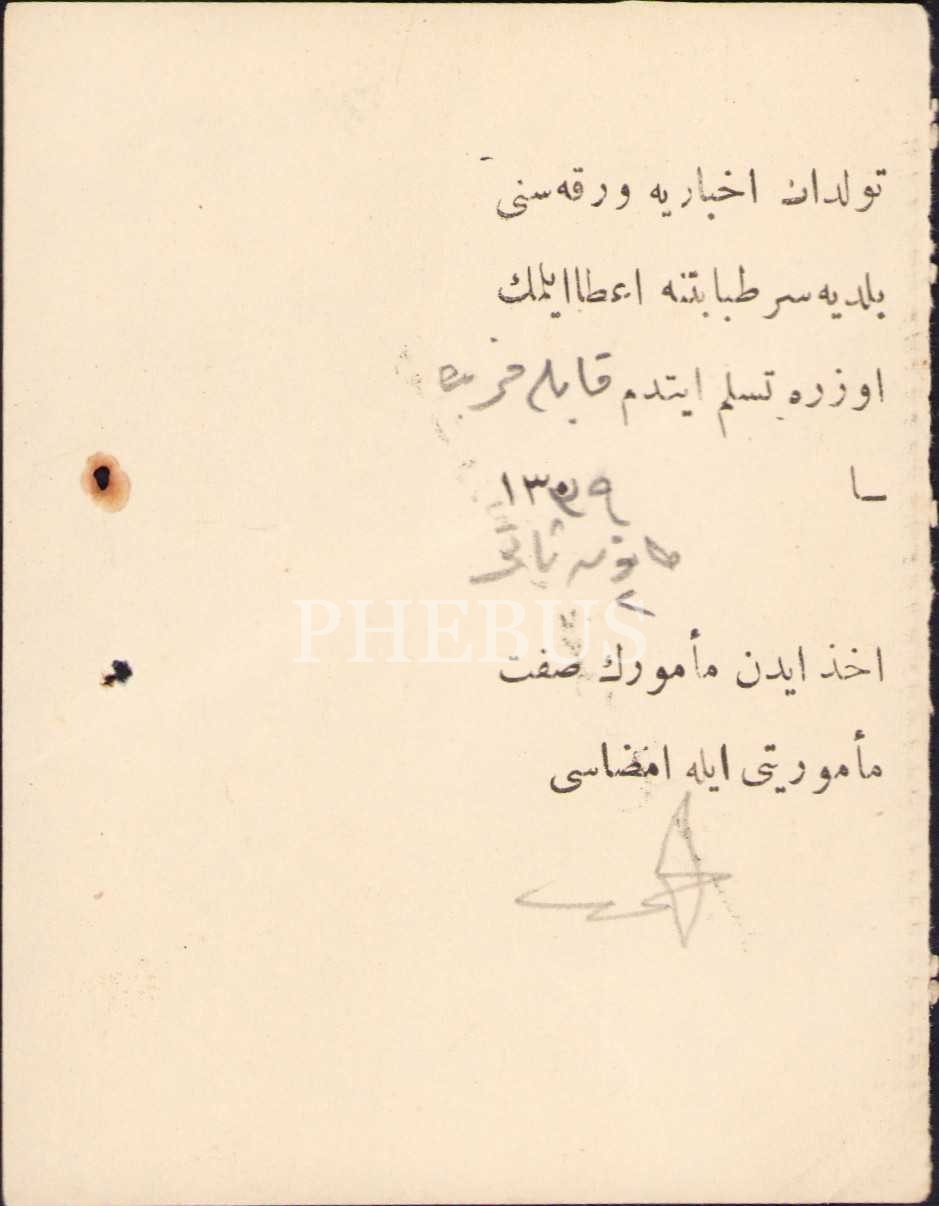 تولدات اخباریه ورقه‌سنی
بلدیه سر طبابتنه اعطا ایلمك
اوزره تسلم ایتدم قابله
١٣٣٩
كانون ثانی
٢
PHEBUS
اخذ ایدن مأمورك صفت
مأموریتی ایله امضاسی